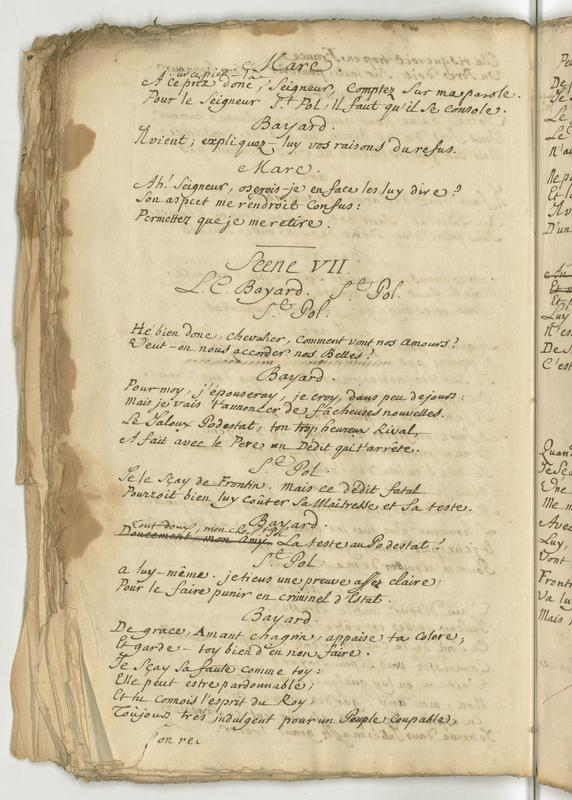 Marc
sur ce pied-là
A ce prix donc, Seigneur, comptez sur ma parole.
Pour le Seigneur St. Pol, il faut qu'il se console.
Bayard.
Il vient; expliquez-luy vos raisons du refus.
Marc.
Ah! Seigneur, oserois-je en face les luy dire?
Son aspect me rendroit confus:
Permettez que je me retire.
Scene VII.
L.C. Bayard. St. Pol.
St. Pol.
Hé bien donc, Chevalier, comment vont nos amours?
Veut-on nous accorder nos Belles?
Bayard.
Pour moy, j'épouseray, je croy, dans peu de jours:
Mais je vais t'annoncer de fâcheuses nouvelles.
Le Jaloux Podestat, ton trop heureux Rival,
A fait avec le Pere un Dédit qui t'arrête.
St. Pol.
Je le sçay de Frontin. Mais ce dédit fatal
Pourroit bien luy coûter sa Maîtresse et sa teste.
Bayard.
Tout doux, mon cher St. Pol
Doucement, mon Amy. La teste au Podestat!
St. Pol
A luy-même. je tiens une preuve assez claire,
Pour le faire punir en criminel d'Estat.
Bayard.
De grace, Amant chagrin, appaise ta colére;
Et garde-toy bien d'en rien faire.
Je sçay sa faute comme toy:
Elle peut estre pardonnable;
Et tu connois l'esprit du Roy,
Toûjours très indulgent pour un Peuple coupable,
son rec